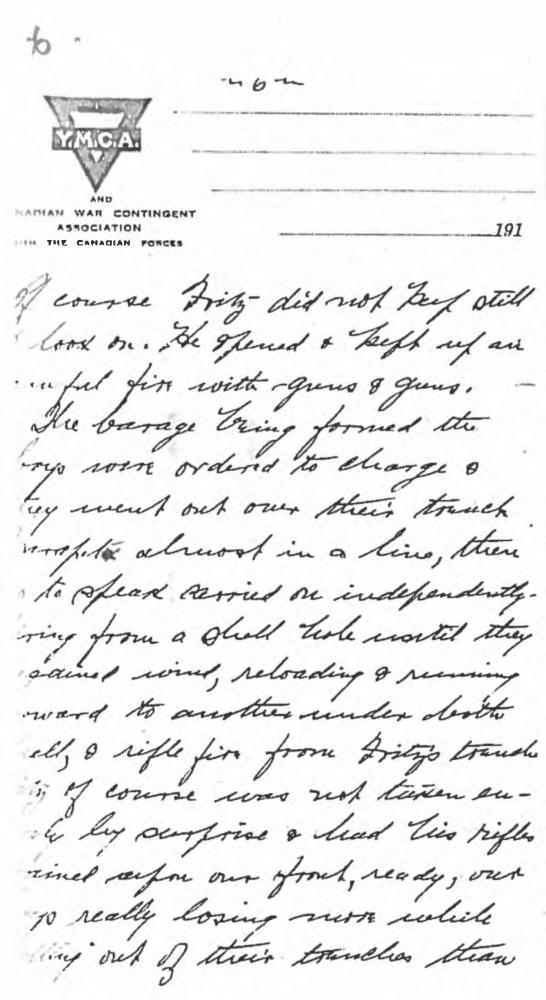 6
~ 6 ~
Y.M.C.A.
AND
NADIAN WAR CONTINGENT
ASSOCIATION
THE CANADIAN FORCES
191
Of course Fritz did not keep still
look on. He opened & kept up an
ful fire with guns & guns.
The barage being formed the
were ordered to charge &
ey went out over their trench
almost in a line, then
to speak carried on independently-
ring from a shell hole until they
gained wind, reloading & running
rward to another under death
ell, & rifle fire from Fritz's trench
of course was not taken en-
by surprise & had his rifles
ained upon our front, ready, our
really losing more while
out of their trenches than